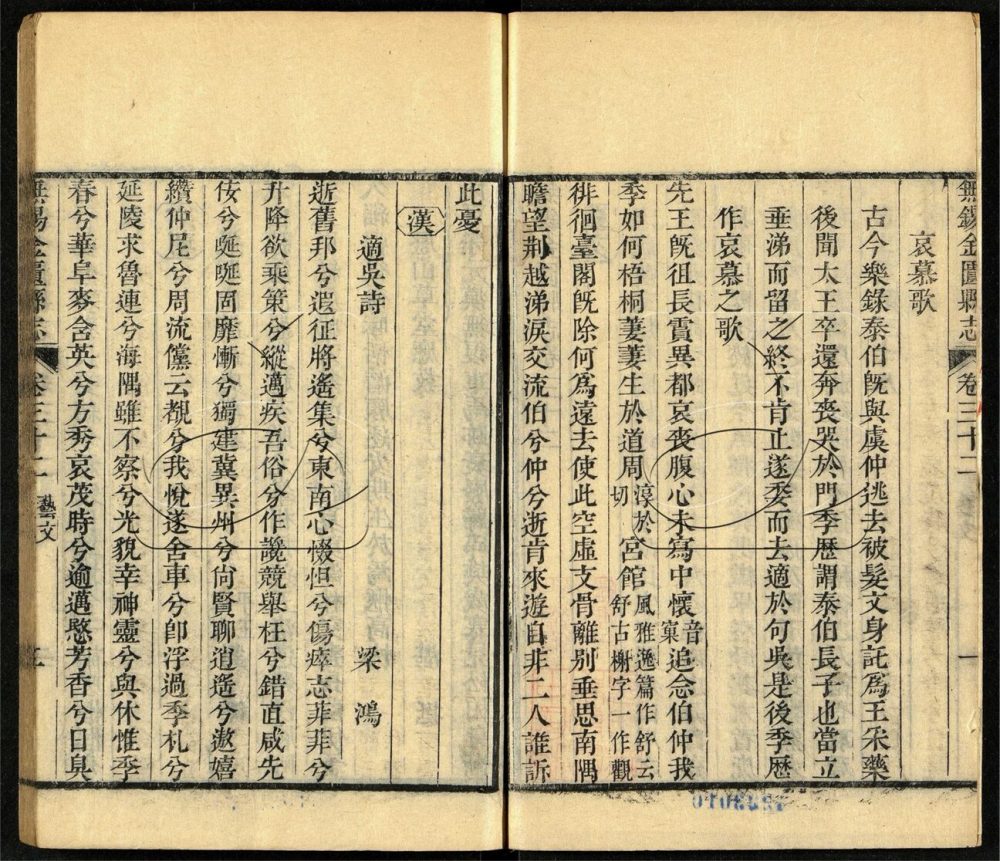 無錫金匱縣志 卷三十二 一
哀慕歌
古今樂錄泰伯旣與虞仲逃去被髮文身託爲王采藥
後聞太王卒還奔喪哭於門季歷謂泰伯長子也當立
垂涕而留之終不肯止遂委而去適於句吳是後季歷
作哀慕之歌
先王旣徂長霣異都哀喪腹心未寫中懷音窠追念伯仲我
季如何梧桐萋萋生於道周淳於切宮館風雅逸篇作舒云舒古榭字一作觀
徘徊臺閣旣除何爲遠去使此空虛支骨離别垂思南隅
瞻望荆越涕淚交流伯兮仲兮逝肯來遊自非二人誰訴
此憂
漢
適吳詩 梁鴻
逝舊邦兮遐征將遙集兮東南心惙怛兮傷瘁志菲菲兮
升降欲乘策兮縱邁疾吾俗兮作讒競舉枉兮錯直咸先
佞兮唌唌固靡慚兮獨建冀異州兮尙賢聊逍遙兮遨嬉
纘仲尼兮周流儻云覩兮我悅遂舍車兮卽浮過季札兮
延陵求魯連兮海隅雖不察兮光貌幸神靈兮與休惟季
春兮華阜麥含英兮方秀哀茂時兮逾邁愍芳香兮日臭
無錫金匱縣志 卷三十二 藝文